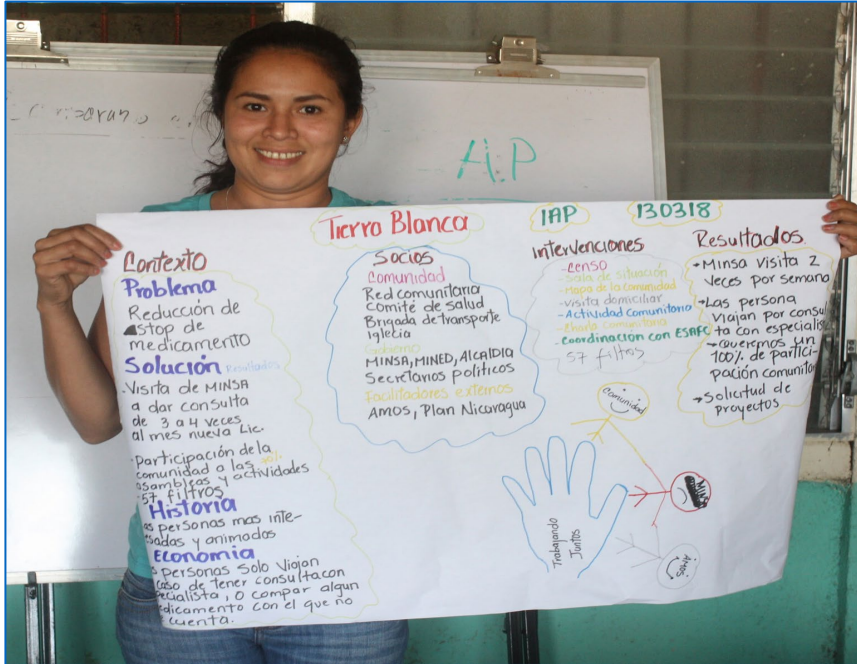 A.P
Tierra Blanca
IAP
130318
Contexto
Problema
Reducción de
stop de
medicamento
Solución Resultados
- Visita de MINSA
a dar consulta
de 3 a 4 veces
al mes nueva Lic.
- Participación de la 70%
comunidad a las
asambleas y actividades
- 57 filtros
Historia
as personas mas inte-
esadas y animados
Economia
s personas Solo Viajan
caso de tener consulta con
pecialista, o compar algun
dicamento con el que no
cuenta.
Socios
Comunidad
Red comunitaria
Comité de salud
Brigada de transporte
Iglecia
Gobierno
MINSA, MINED, ALCALDIA
Secretarios políticos
Facilitadores externos
AMOS, Plan Nicaragua
Intervenciones
- Censo
- Sala de situación
- Mapa de la comunidad
- Visita domiciliar
- Actividad comunitaria
- Charla comunitaria
- Coordinación con ESAFC
57 filtros
Resultados
→ Minsa Visita 2
veces por semana
→ Las persona
Viajan por consul
ta con especialis
→ Queremos un
100% de partici-
pación comunitar
→ Solicitud de
proyectos
Comunidad
MINSA
AMOS
Trabajando
Juntos